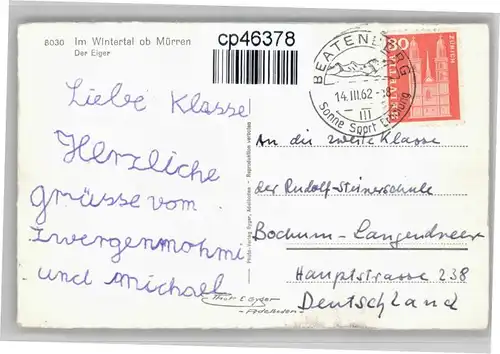 8030 Im Wintertal ob Mürren
Der Eiger
cp46378
BEATENBERG
14.III.62 - 18
III
Sonne Sport Erholung
30
ZÜRICH
HELVETIA
Liebe Klasse
Herzliche
grüsse vom
Zwergenmohmi
und Michael
Photo-Verlag Gyger, Adelboden - Reproduktion verboten
An die zweite Klasse
der Rudolf-Steinerschule
Bochum-Langendreer
Hauptstrasse 238
Deutschland
E Gyger
- Adelboden -